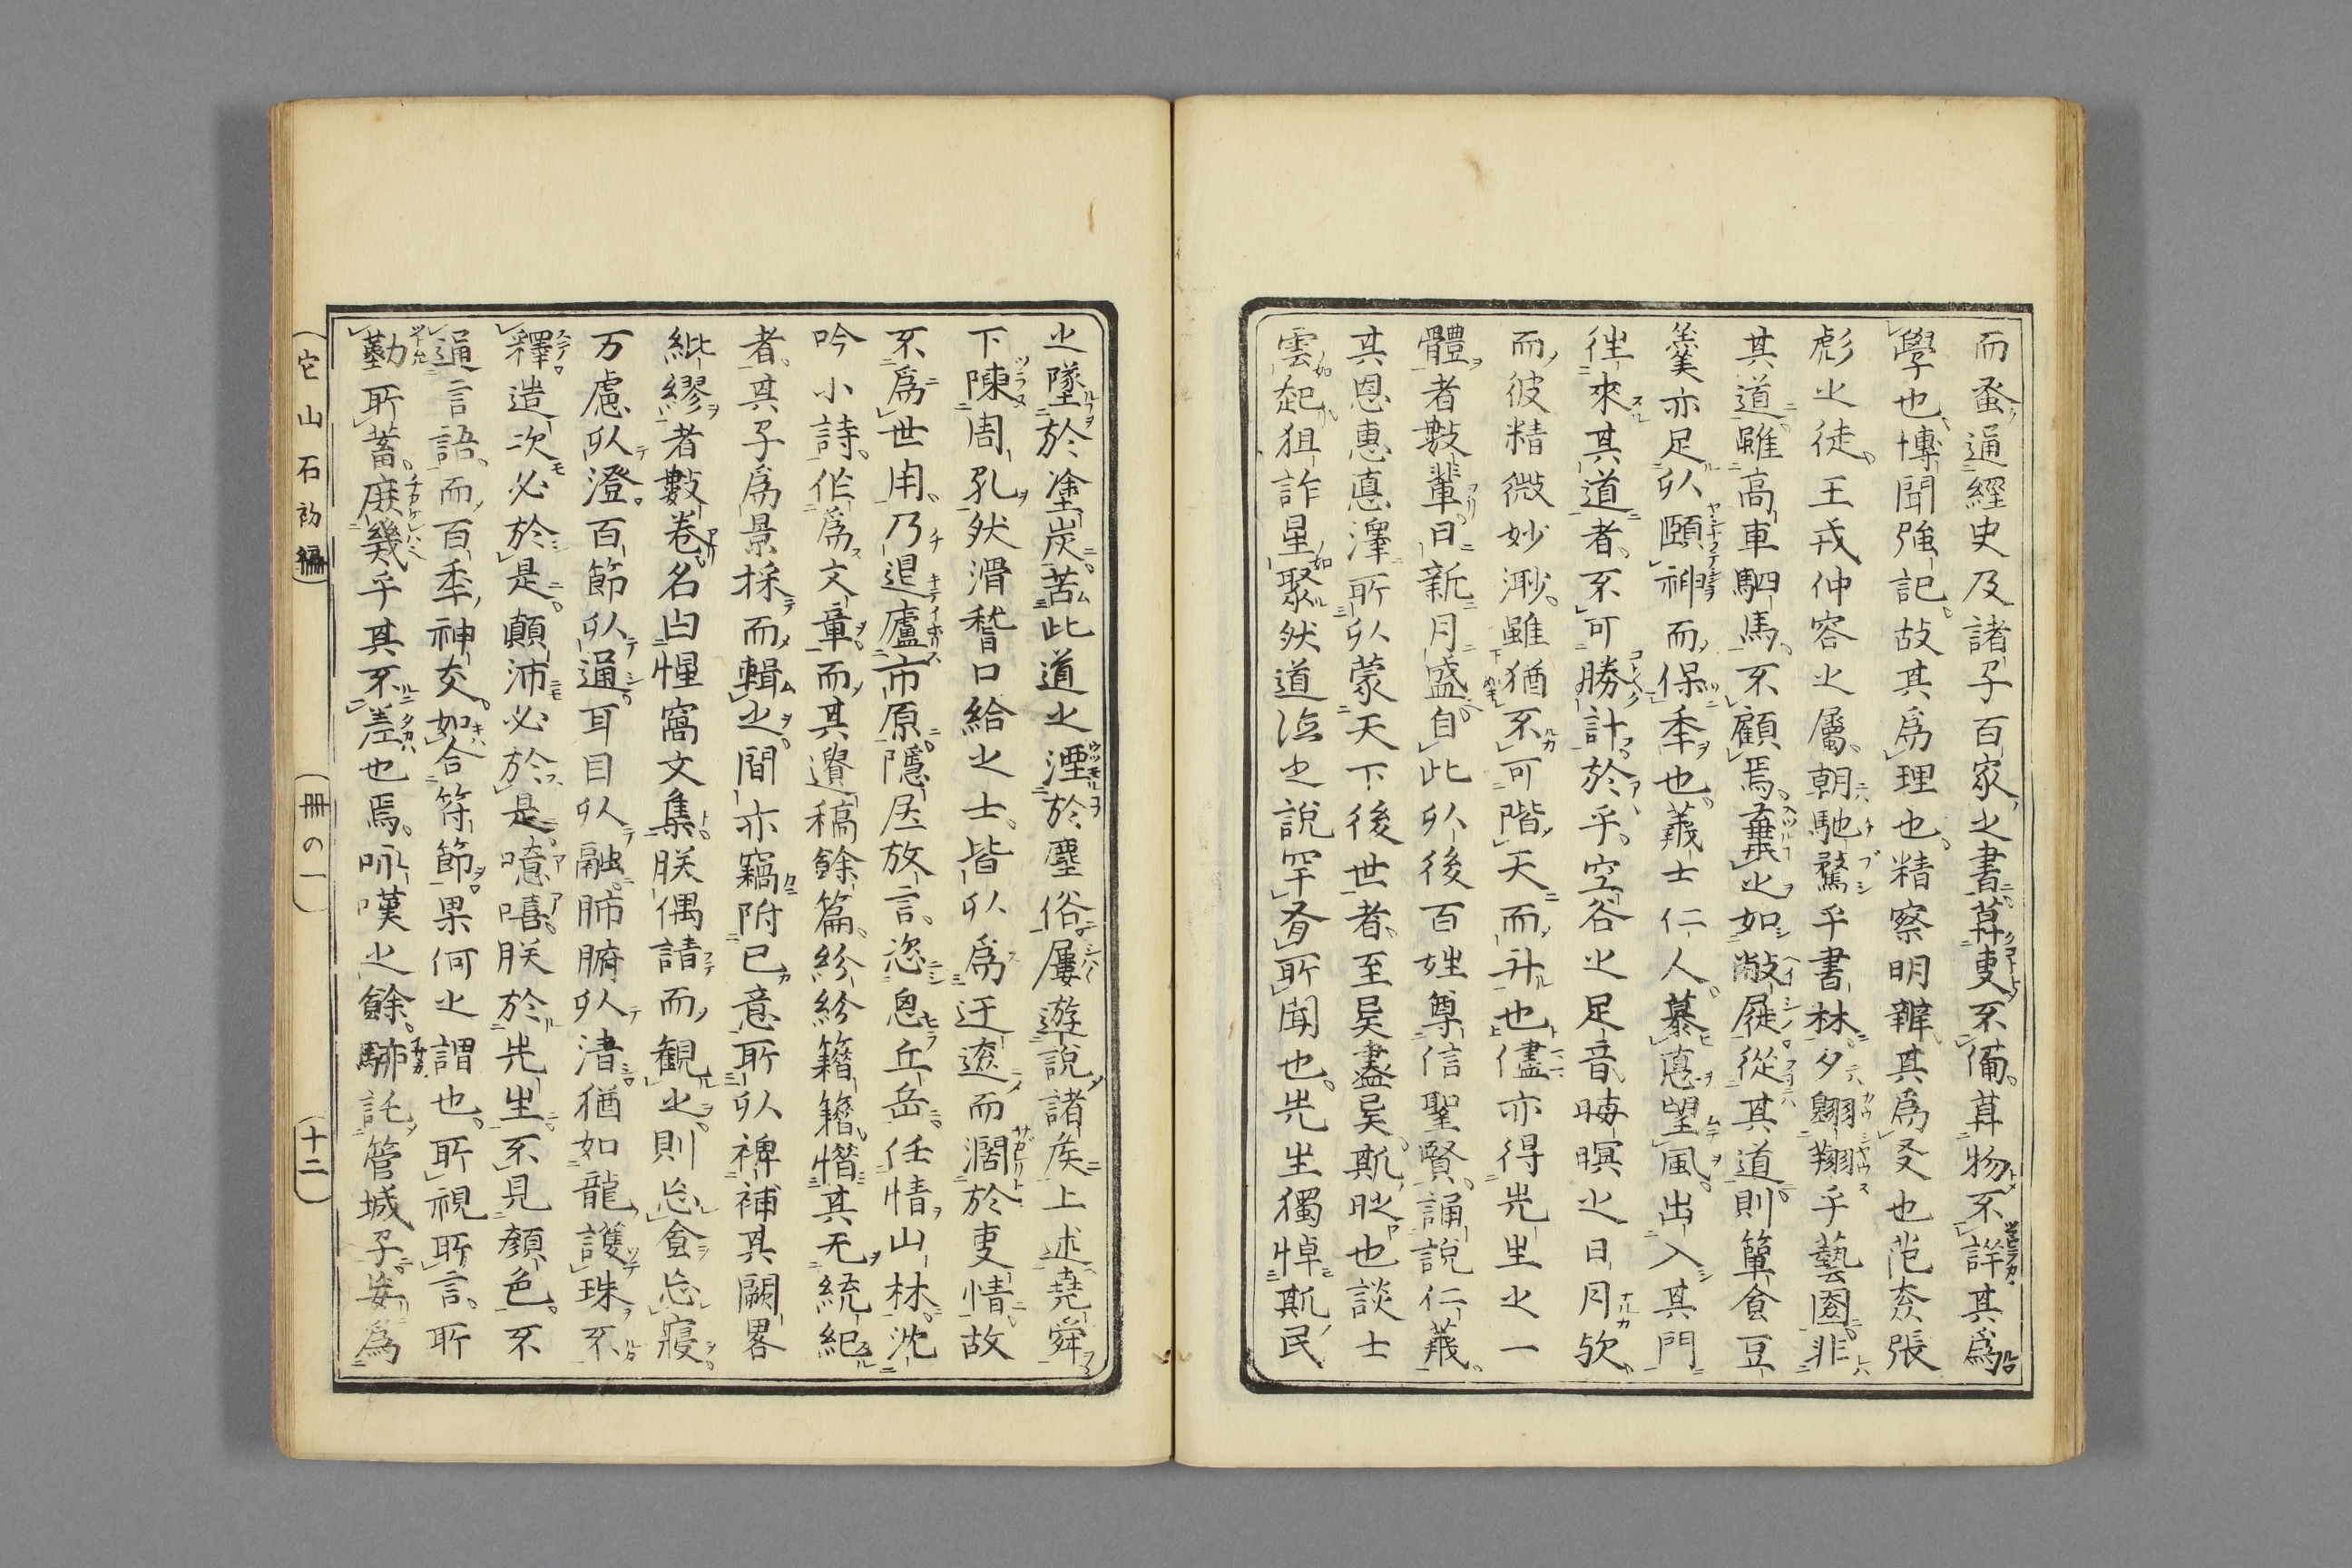 而蚤通經史及諸子百家之書莫叓不備莫物不詳其爲
學也博聞強記故其爲理也精察明辨其爲文也范
彪之徒王戎仲容之屬朝馳騖乎書林夕翺翔乎藝園非
其道雖高車駟馬不顧焉棄之如敝屣從其道則簞食豆
羹亦足以頤神而保年也義士仁人慕悳望風出入其門
徃來其道者不可勝計於乎空谷之足音晦暝之日月欤
而彼精微妙渺雖猶不可階天而升也儘亦得先生之一
體者數輩日新月盛自此以後百姓尊信聖賢誦說仁義
其恩惠悳澤所以蒙天下後世者至矣盡矣斯時也談士
雲起狙詐星聚然道德之說罕有所聞也先生獨悼斯民
之墜於塗炭苦此道之湮於塵俗屢遊說諸侯上述堯舜
下陳周孔然滑稽口給之士皆以爲迂遼而濶於叓情故
不爲世用乃退廬市原隱居放言恣息丘岳任情山林沈
吟小詩作爲文章而其遺稿餘篇紛紛籍籍憯其无統紀
者其子爲景採而輯之間亦竊附已意所以裨補其闕畧
紕繆者數卷名曰惺窩文集朕偶請而観之則忘食忘寢
万慮以澄百節以通耳目以融肺腑以淸猶如龍護珠不
釋造次必於是顚沛必於是噫嘻朕於先生不見顏色不
通言語而百年神交如合符節果何之謂也所視所言所
勤所蓄庶幾乎其不差也焉咏嘆之餘聊託管城子妄爲
它山石初編
冊の一
十二